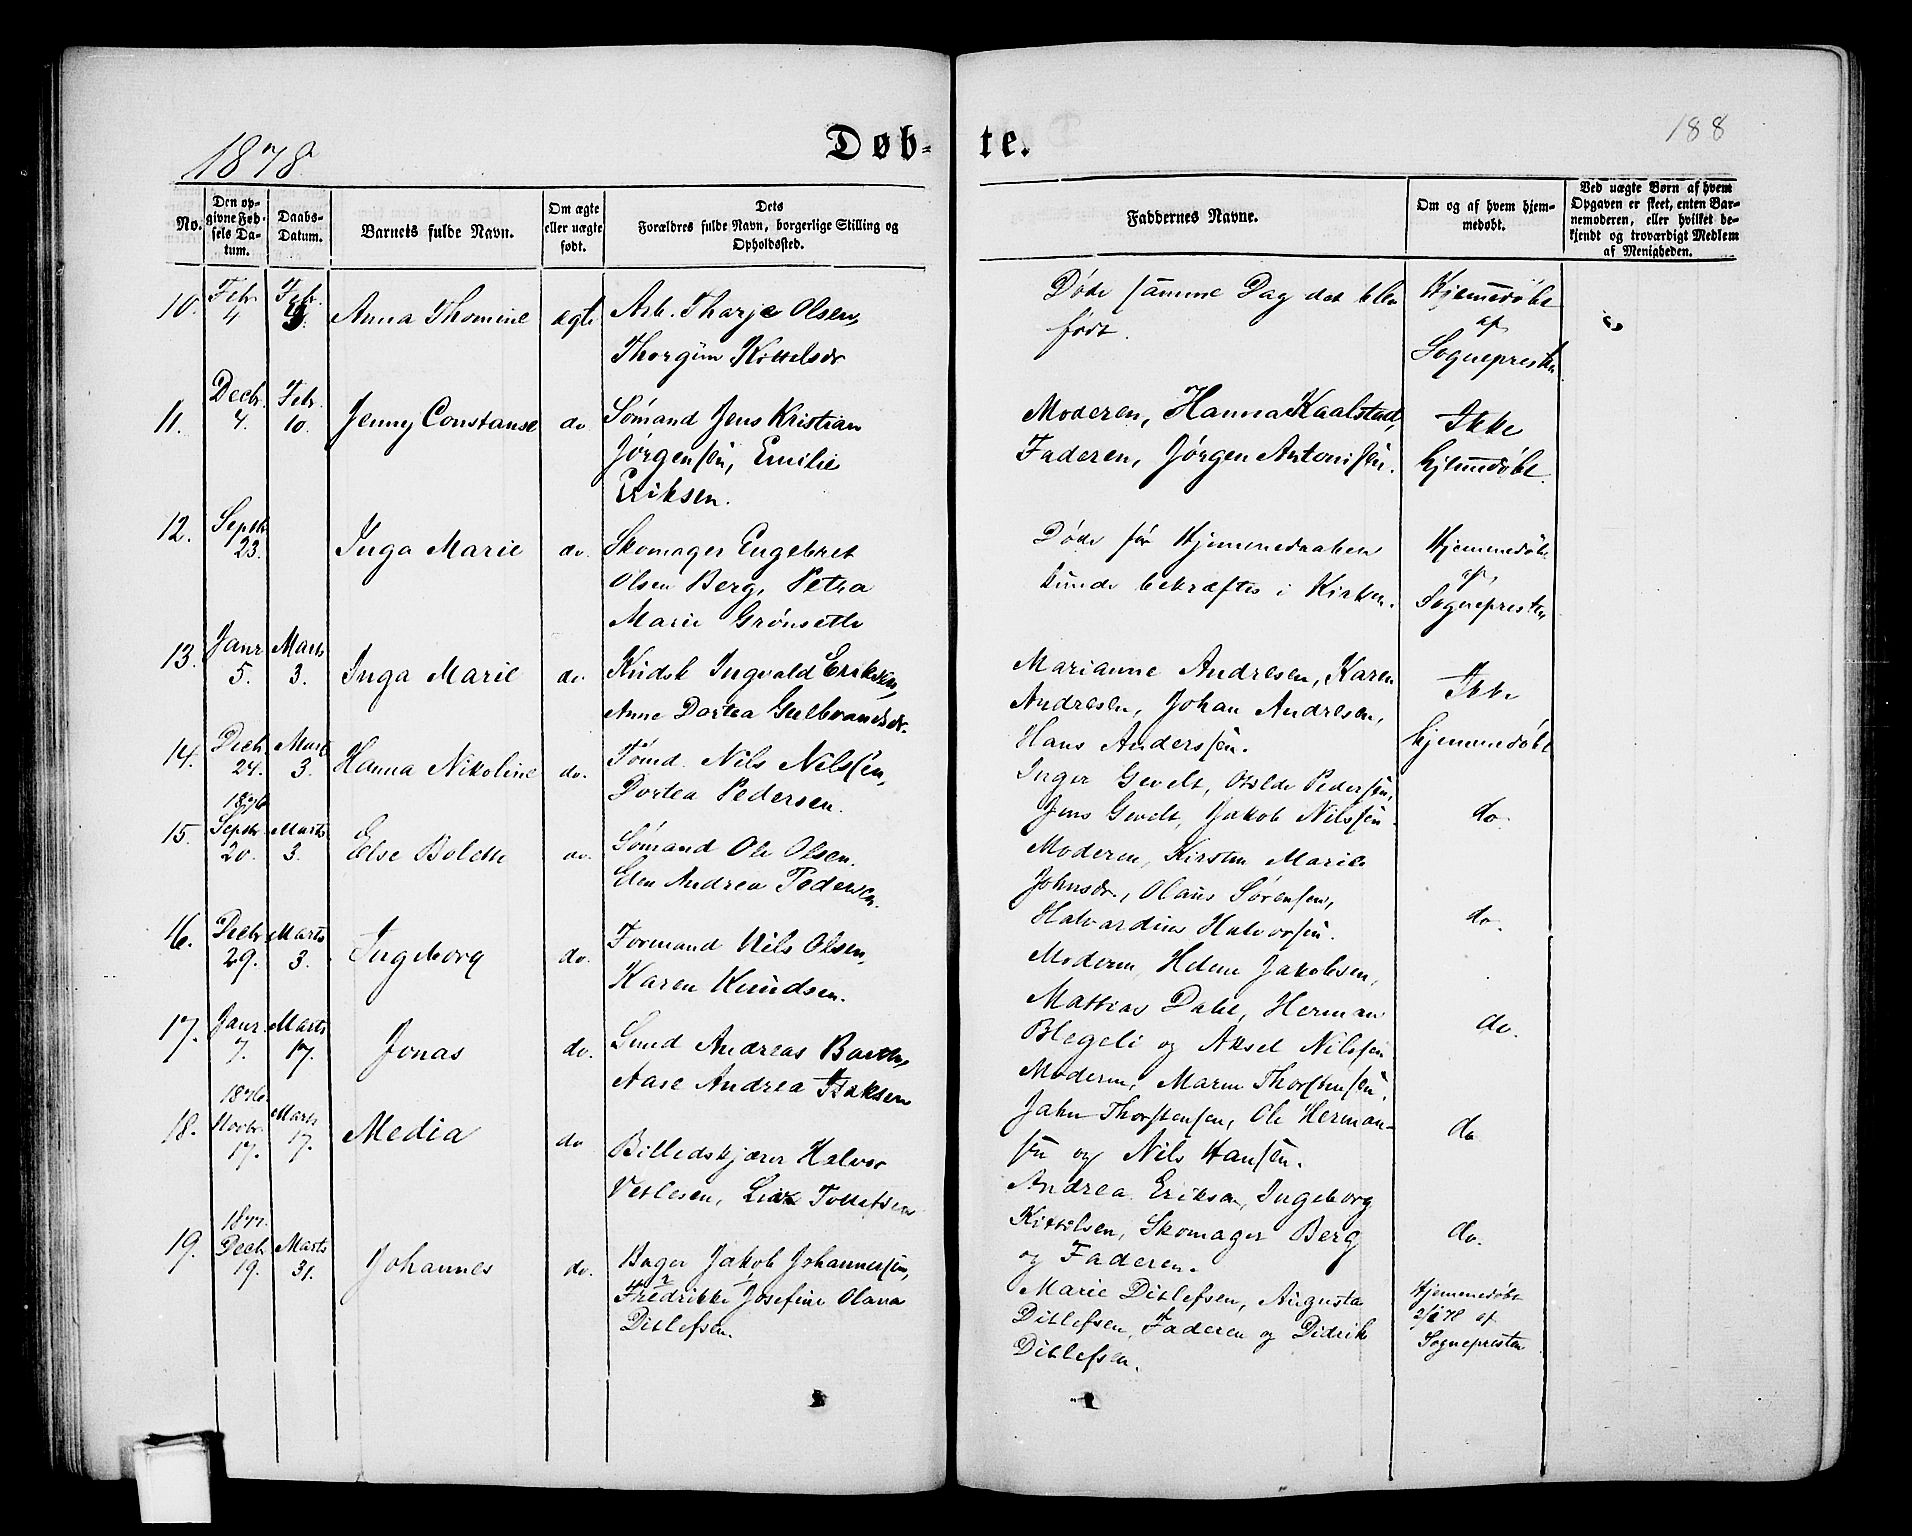 1878.
Døb-
te.
188
No.
Den op-
givne Fød-
sels Da-
tum.
Daabs-
Datum.
Barnets fulde Navn.
Om ægte
eller uægte
født.
Dets
Forældres fulde Navn, borgerlige Stilling og
Opholdssted.
Faddernes Navne.
Om og af hvem hjem-
medøbt.
Ved uægte Børn af hvem
Opgaven er skeet, enten Bar-
nemoderen, eller hvilket be-
kjendt og troværdigt Medlem
af Menigheden.
10. Febr. 4 Febr. Anna Thomine ægte Arb. Tharje Olsen,
Thorgun Kittelsdr
Døde samme Dag det blev
født.
Hjemmedøbt
af
Sognepresten
11. Decbr. 4. Febr. 10. Jenny Constanse do. Sømand Jens Kristian
Jørgensen, Emilie
Eriksen.
Moderen, Hanna Kaalstad,
Faderen, Jørgen Antonisen.
Ikke
hjemmedøbt.
12. Septbr 23. Inga Marie do. Skomager Engebret
Olsen Berg, Petra
Marie Grønseth
Døde før Hjemmedaaben
kunde bekræftes i Kirken.
Hjemmedøbt
af
Sognepresten
13. Janr 5. Marts 3. Inga Marie do. Kudsk Ingvald Eriksen,
Anne Dortea Gulbrandsdr.
Marianne Andresen, Karen
Andresen, Johan Andresen,
Hans Anderssen.
Ikke
hjemmedøbt
14. Decbr 24. Marts 3. Hanna Nikoline do. Tømd. Nils Nilssen,
Dortea Pedersen.
Inger Gevelt, Otilde Pedersen,
Jens Gevelt, Jakob Nilssen.
do.
15. 1876 Septbr. 20. Marts 3. Else Bolette do. Sømand Ole Olsen.
Elen Andrea Pedersen.
Moderen, Kirsten Marie
Johnsdr., Olaus Sørensen,
Halvardius Halvorsen.
do.
16. Decbr. 29. Marts 3. Ingeborg do. Formand Nils Olsen,
Karen Knudsen.
Moderen, Helene Jakobsen,
Mattias Dahl, Herman
Blegeli og Aksel Nilssen
do.
17. Janr. 7. Marts 17. Jonas do. Andreas
Aase Andrea Isaksen
Moderen, Maren Thorstensen,
Jahn Thorstensen, Ole Herman-
sen og Nils Hansen.
do
18. 1876. Novbr. 17. Marts 17. Media do Billedskjærer Halvor
Vetlesen, Tollefsen
Andrea Eriksen, Ingeborg
Kittilsen, Skomager Berg
og Faderen.
do.
19. 1877. Decbr 19. Marts 31. Johannes do. Bager Jakob Johannesen,
Fredrikke Josefine Olava
Ditlefsen.
Marie Ditlefsen, Augusta
Ditlefsen, Faderen og Didrik
Ditlefsen.
Hjemmedøbt
af
Sognepresten